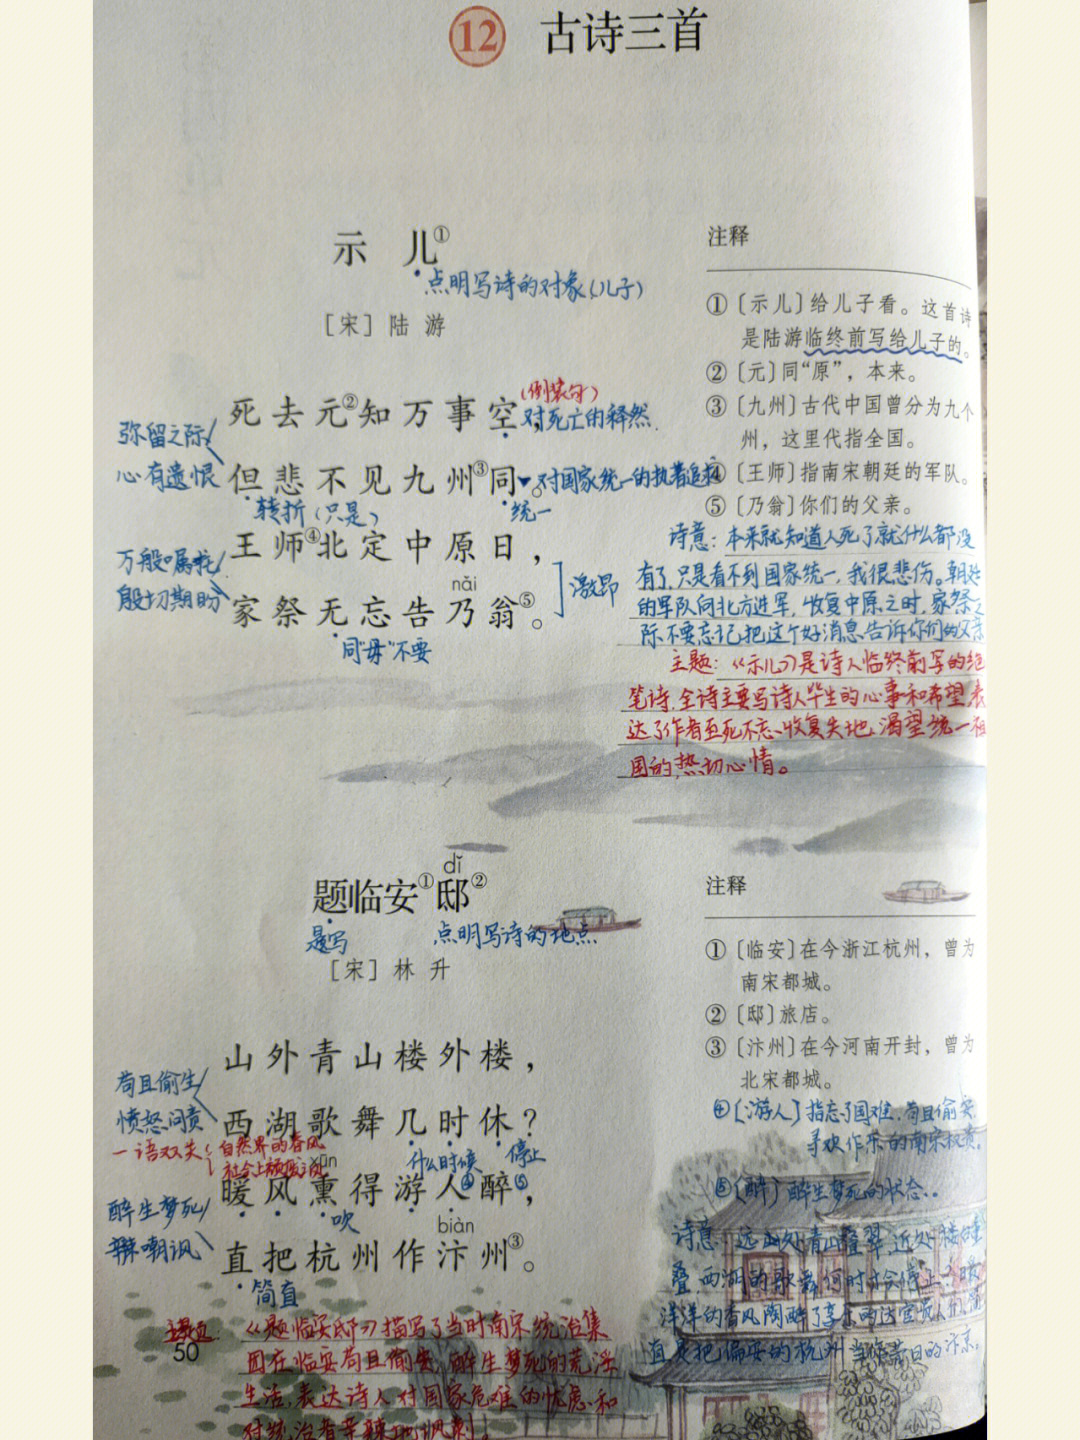 12 古诗三首
示 儿①
点明写诗的对象(儿子)
[宋] 陆 游
(倒装句)
死去元②知万事空，
对死亡的释然
弥留之际
心有遗恨
但悲不见九州③同。
对国家统一的执着追求
转折(只是)
统一
王师④北定中原日，
万般嘱托
殷切期盼
激昂
nǎi
家祭无忘告乃翁⑤。
同“毋”不要
注释
①〔示儿〕给儿子看。这首诗
是陆游临终前写给儿子的。
②〔元〕同“原”，本来。
③〔九州〕古代中国曾分为九个
州，这里代指全国。
④〔王师〕指南宋朝廷的军队。
⑤〔乃翁〕你们的父亲。
诗意：本来就知道人死了就什么都没
有了，只是看不到国家统一，我很悲伤。朝廷
的军队向北方进军，收复中原之时，家祭之
际不要忘记把这个好消息告诉你们的父亲
主题：《示儿》是诗人临终前写的绝
笔诗，全诗主要写诗人毕生的心事和希望，表
达了作者至死不忘收复失地、渴望统一祖
国的热切心情。
dǐ
题临安①邸②
题写
点明写诗的地点
[宋] 林 升
山外青山楼外楼，
苟且偷生
愤怒问责
西湖歌舞几时休？
一语双关
自然界的春风
什么时候
停止
xūn
暖风熏得游人④醉⑤，
吹
醉生梦死
辣嘲讽
biàn
直把杭州作汴州③。
简直
注释
①〔临安〕在今浙江杭州，曾为
南宋都城。
②〔邸〕旅店。
③〔汴州〕在今河南开封，曾为
北宋都城。
④〔游人〕指忘了国难，苟且偷安，
寻欢作乐的南宋权贵。
⑤〔醉〕醉生梦死的状态。
诗意：远处青山叠翠，近处楼台重
叠，西湖的歌舞何时才会停止？暖
洋洋的春风陶醉了享乐的达官贵人们，简
直是把偏安的杭州当作昔日的汴京。
主题
《题临安邸》描写了当时南宋统治集
团在临安苟且偷安，醉生梦死的荒淫
生活，表达诗人对国家危难的忧虑和
对统治者辛辣地讽刺。
50